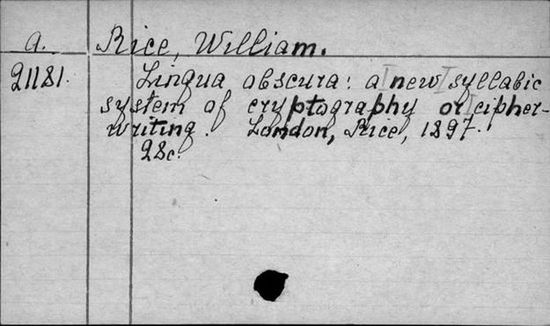 a. Rice, William.
21181. Lingua obscura: a new syllabic
system of cryptography or cipher-
writing. London, Rice, 1897.
28c.